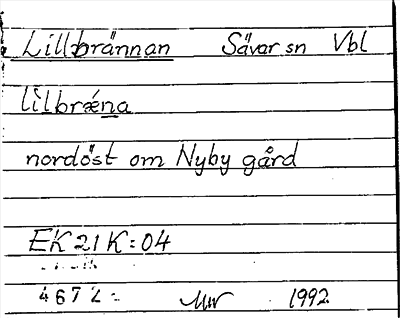 Lillbrännan Sävar sn Vbl
lilbrǽna
nordöst om Nyby gård
EK 21 K:04
1992